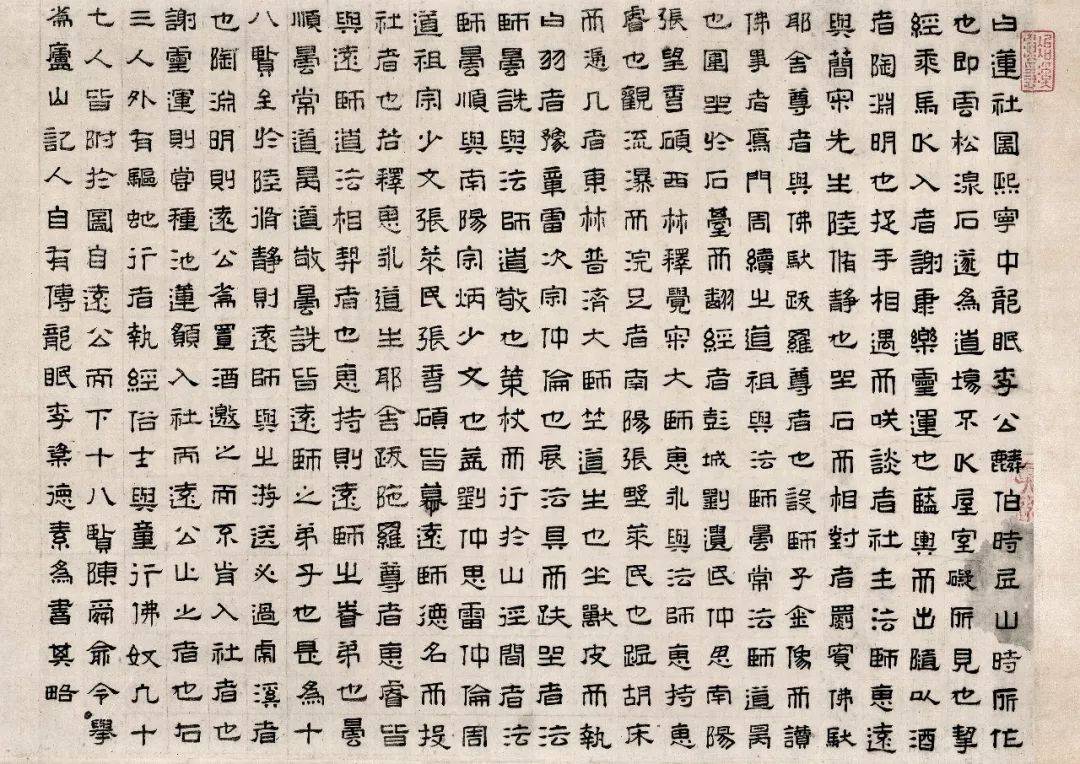 白蓮社圖熙寧中龍眠李公麟伯時丘山時所作
也即雲松湶石遂為道場不以屋室礙所見也挈
經乘馬以入者謝康樂靈運也藍輿而出隨以酒
者陶淵明也捉手相遇而咲談者社主法師惠遠
與簡宋先生陸脩靜也坐石而相對者罽賓佛馱
耶舍尊者與佛馱跋羅尊者也設師子金像而讚
佛事者鴈門周續之道祖與法師曇常法師道昺
也圍坐於石臺而翻經者彭城劉遺民仲思南陽
張望雩碩西林釋覺宋大師惠永與法師惠持惠
睿也觀流瀑而浣足者南陽張野萊民也踞胡床
而憑几者東林普濟大師竺道生也坐獸皮而執
白羽者豫章雷次宗仲倫也展法具而趺坐者法
師曇詵與法師道敬也策杖而行於山徑間者法
師曇順與南陽宗炳少文也葢劉仲思雷仲倫周
道祖宗少文張萊民張雩碩皆慕遠師德名而投
社者也若釋惠永道生耶舍跋陁羅尊者惠睿皆
與遠師道法相契者也惠持則遠師之眷弟也曇
順曇常道昺道敬曇詵皆遠師之弟子也是為十
八賢至於陸脩靜則遠師與之游送必過虎溪者
也陶淵明則遠公甞置酒邀之而不肯入社者也
謝靈運則嘗種池蓮願入社而遠公止之者也右
三人外有驅虵行者執經俗士與童行佛奴凡十
七人皆附於圖自遠公而下十八賢陳舜俞令舉
甞廬山記人自有傳龍眠李楶德素為書其略